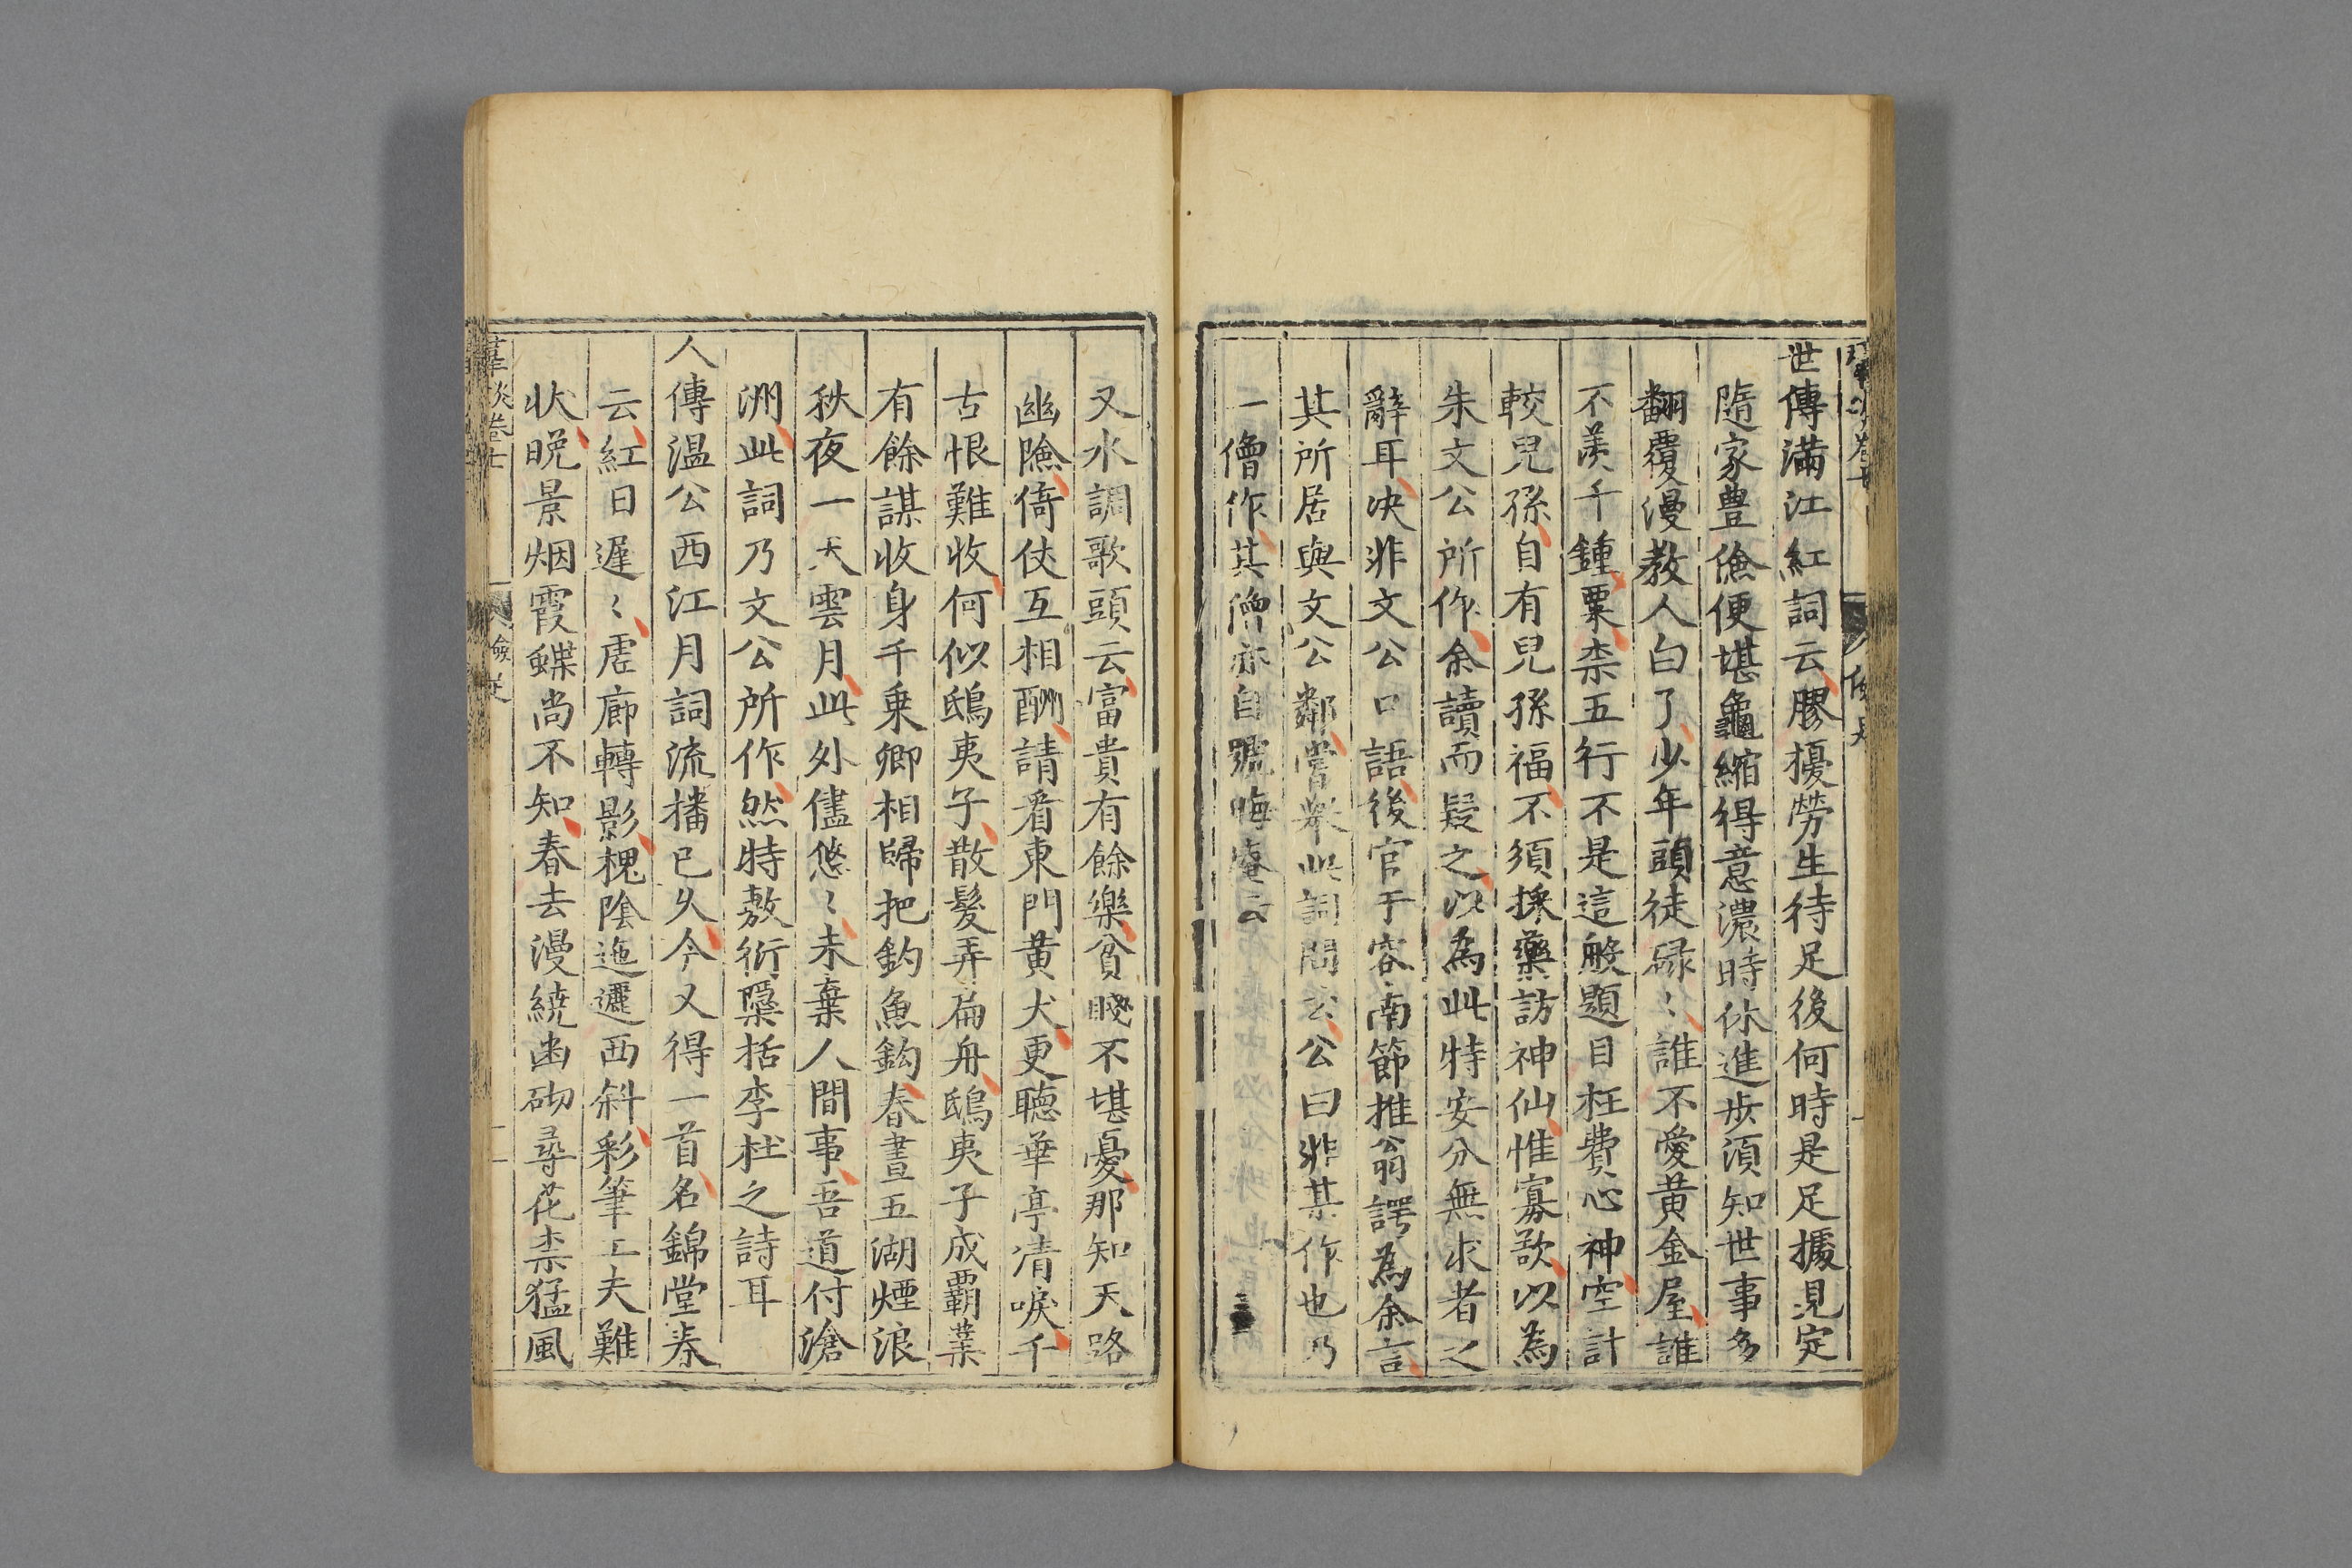 世傳滿江紅詞云膠擾勞生待足後何時是足據見定
隨家豊儉便堪龜縮得意濃時休進步須知世事多
翻覆漫教人白了少年頭徒碌〻誰不愛黃金屋誰
不羨千鍾粟柰五行不是這般題目枉費心神空計
較兒孫自有兒孫福不須採藥訪神仙惟寡欲以為
朱文公所作余讀而疑之以為此特安分無求者之
辭耳决非文公口語後官于容南節推翁諤為余言
其所居與文公鄰嘗舉此詞問公公曰非某作也乃
一僧作其僧亦自號晦庵云
又水調歌頭云富貴有餘樂貧賤不堪憂那知天路
幽險倚伏互相酬請看東門黃犬更聽華亭清唳千
古恨難收何似鴟夷子散髮弄扁舟鴟夷子成霸業
有餘謀收身千乗卿相歸把釣魚鈎春晝五湖煙浪
秋夜一天雲月此外儘悠〻未棄人間事吾道付滄
洲此詞乃文公所作然特敷衍櫽括李杜之詩耳
人傳溫公西江月詞流播已久今又得一首名錦堂春
云紅日遲〻虛廊轉影槐陰迤邐西斜彩筆工夫難
狀晚景烟霞蝶尚不知春去漫繞幽砌尋花柰猛風
羣談卷七